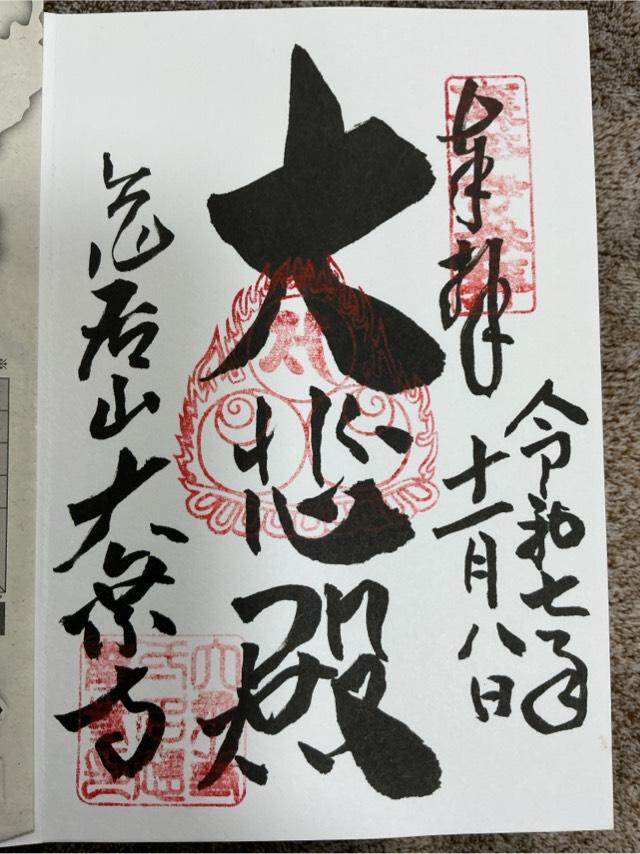 奉拝
令和七年
十一月八日
大悲殿
亀居山 大乗寺